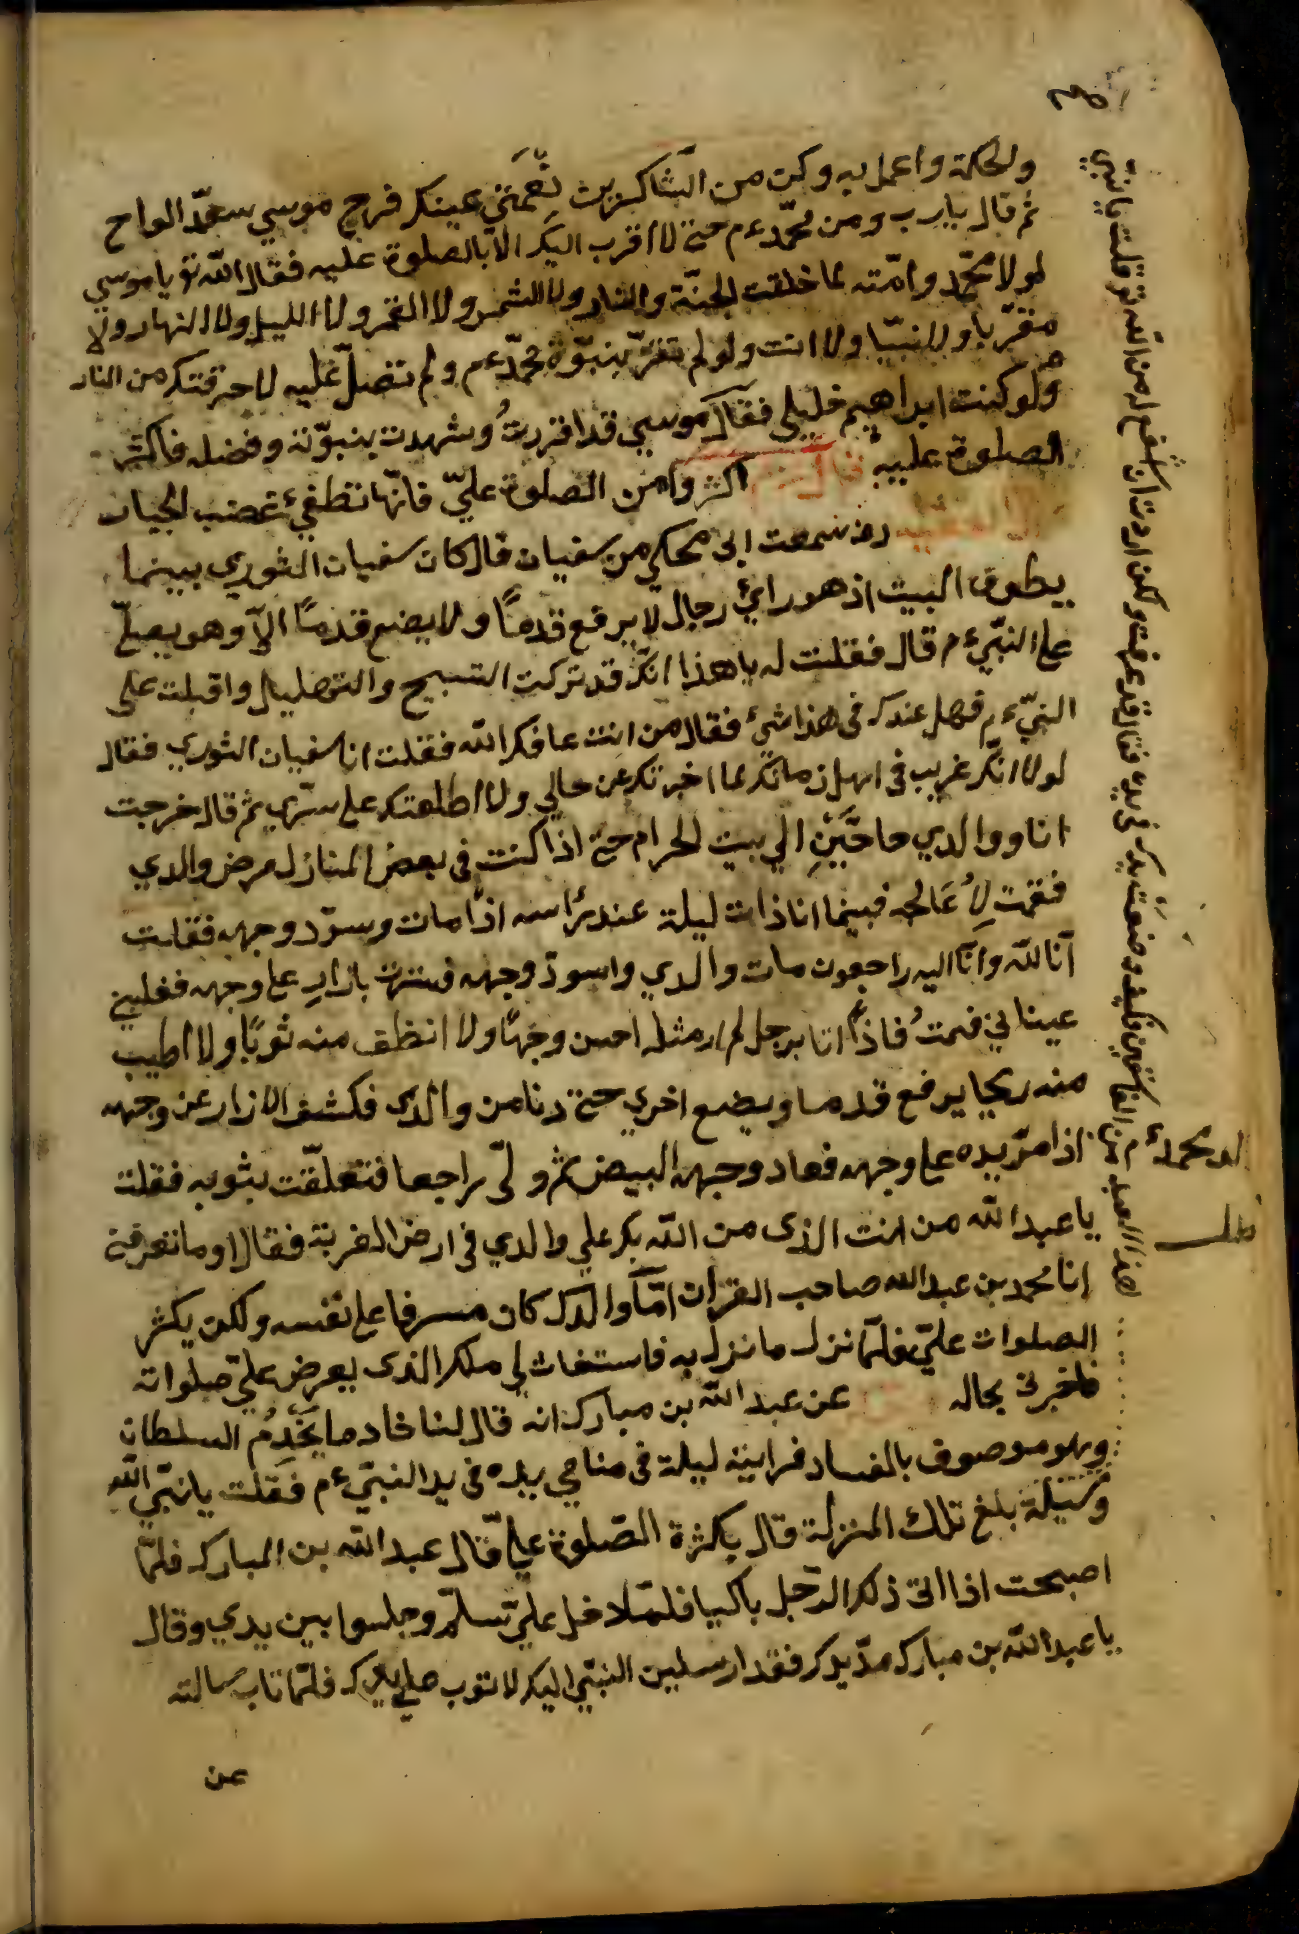 والحكمة واعمل به وكن من الشاكرين نعمتي عينك فرج موسي سعة الواح
ثم قال يارب ومن محمد ءم حتي لا اقرب اليك الا بالصلوة عليه فقال الله تع ياموسي
لولا محمد وامته لما خلقت الجنة والنار ولا الشمس ولا القمر ولا الليل ولا النهار ولا
مقربا ولا نبيا ولا انت ولو لم تقر بنبوة محمد ءم ولم تصل عليه لاحرقتك من النار
ولو كنت ابراهيم خليلي فقال موسي قد اقررت وشهدت بنبوته وفضله فاكثر
الصلوة عليه قال ءم اكثروا من الصلوة علي فانها تطفئ غضب الجبار
قال الفقيه رض سمعت ابي محكي من سفيان قال كان سفيان الثوري بينما
يطوف البيت اذ هو راي رجال لا يرفع قدمًا ولا يضع قدمًا الا وهو يصلي
علي النبي ءم قال فقلت له يا هذا انك قد تركت التسبيح والتهليل واقبلت علي
النبي ءم فهل عندك في هذا شئ فقال من انت عافكر الله فقلت انا سفيان الثوري فقال
لولا انك غريب في اهل زمانك لما اخبرتك عن حالي ولا اطلعتك علي سري ثم قال خرجت
انا ووالدي حاجين الي بيت الحرام حتي اذا كنت في بعض المنازل مرض والدي
فقمت لاعالجه فبينما انا ذات ليلة عند رأسه اذا مات وسود وجهه فقلت
انا لله وانا اليه راجعون مات والدي واسود وجهه فسترت بازار علي وجهه فغلبني
عيناني فنمت فاذا انا برجل لم ار مثله احسن وجهًا ولا انظف منه ثوبًا ولا اطيب
منه ريحا يرفع قدما ويضع اخري حتي دنا من والدي فكشف الازار عن وجهه
اذا مر بيده علي وجهه فعاد وجهه البيض ثم ولي راجعا فتعلقت بثوبه فقلت
يا عبد الله من انت الذي من الله بك علي والدي في ارض الغربة فقال او ما تعرفني
انا محمد بن عبد الله صاحب القران اما والدك كان مسرفا علي نفسه ولكن يكثر
الصلوات علي فلما نزل ما نزل به فاستغاث لي ملك الذي يعرض علي صلواته
فاخبرني بحاله عن عبد الله بن مبارك انه قال لنا خادم يخدم السلطان
وهو موصوف بالفساد فراينه ليلة في منامي بيده في يد النبي ءم فقلت يا نبي الله
وسيلة بلغ تلك المنزلة قال بكثرة الصلوة علي قال عبد الله بن المبارك فلما
اصبحت اذا اتي ذلك الرجل باكيا فلما دخل علي تسلم وجلسوا بين يدي وقال
يا عبد الله بن مبارك مد يدك فقد ارسلني النبي اليك لاتوب علي يدك فلما تاب سالته
عن
هذا العبد من الفاسقين فكيف وضعت يدك في يده فقال قد عرفت ولكن اردت ان اشفع له من الله تع قلت يا نبي